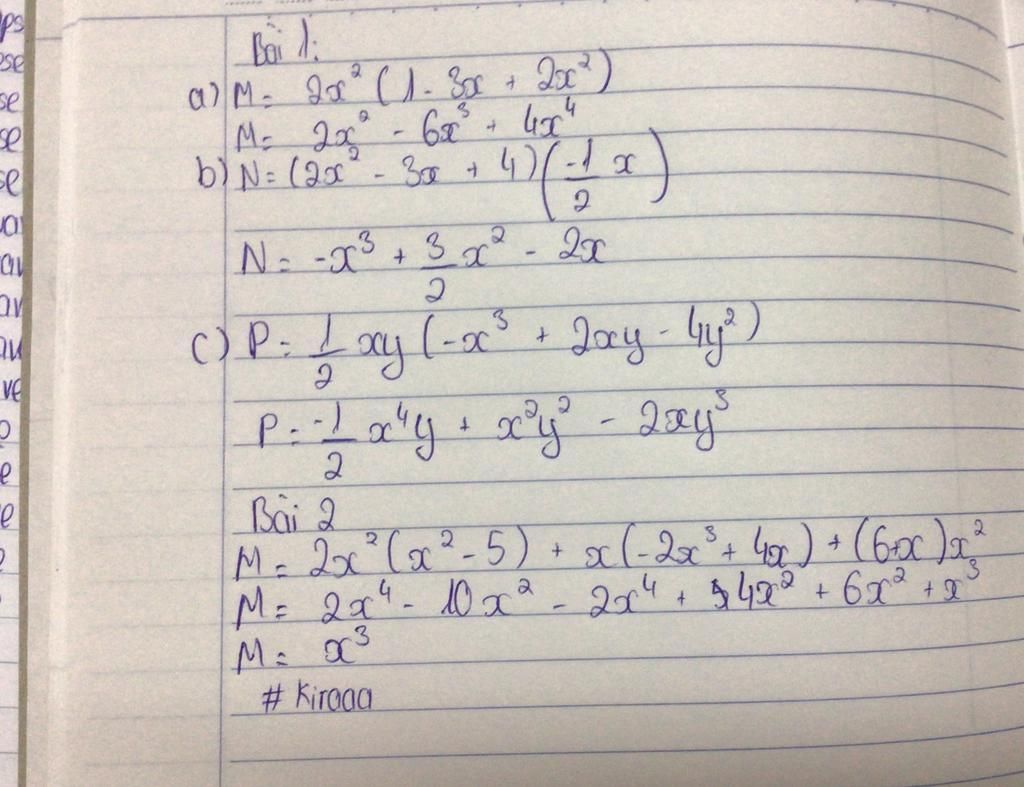 Bài 1:
a) M = 2x² (1 - 3x + 2x²)
M = 2x² - 6x³ + 4x⁴
b) N = (2x² - 3x + 4) (-1/2 x)
N = -x³ + 3/2 x² - 2x
c) P = 1/2 xy (-x³ + 2xy - 4y²)
P = -1/2 x⁴y + x²y² - 2xy³
Bài 2
M = 2x² (x² - 5) + x (-2x³ + 4x) + (6+x) x²
M = 2x⁴ - 10x² - 2x⁴ + 4x² + 6x² + x³
M = x³
# Kiraaa